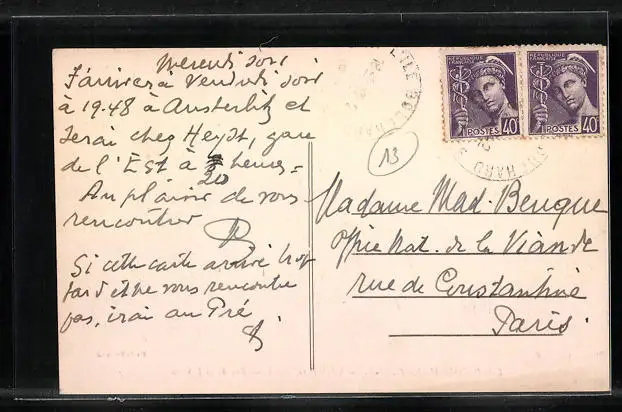 mercredi soir
J'arriverai Vendredi soir
à 19.48 à Austerlitz et
serai chez Heydt, gare
de l'Est à 20 heures =
Au plaisir de vous
rencontrer
Si cette carte arrive trop
tard et ne vous rencontre
pas, irai au Pré
13
REPUBLIQUE FRANÇAISE
POSTES 40c
REPUBLIQUE FRANÇAISE
POSTES 40c
Madame Mad. Benque
Office Nat. de la Viande
rue de Constantine
Paris.